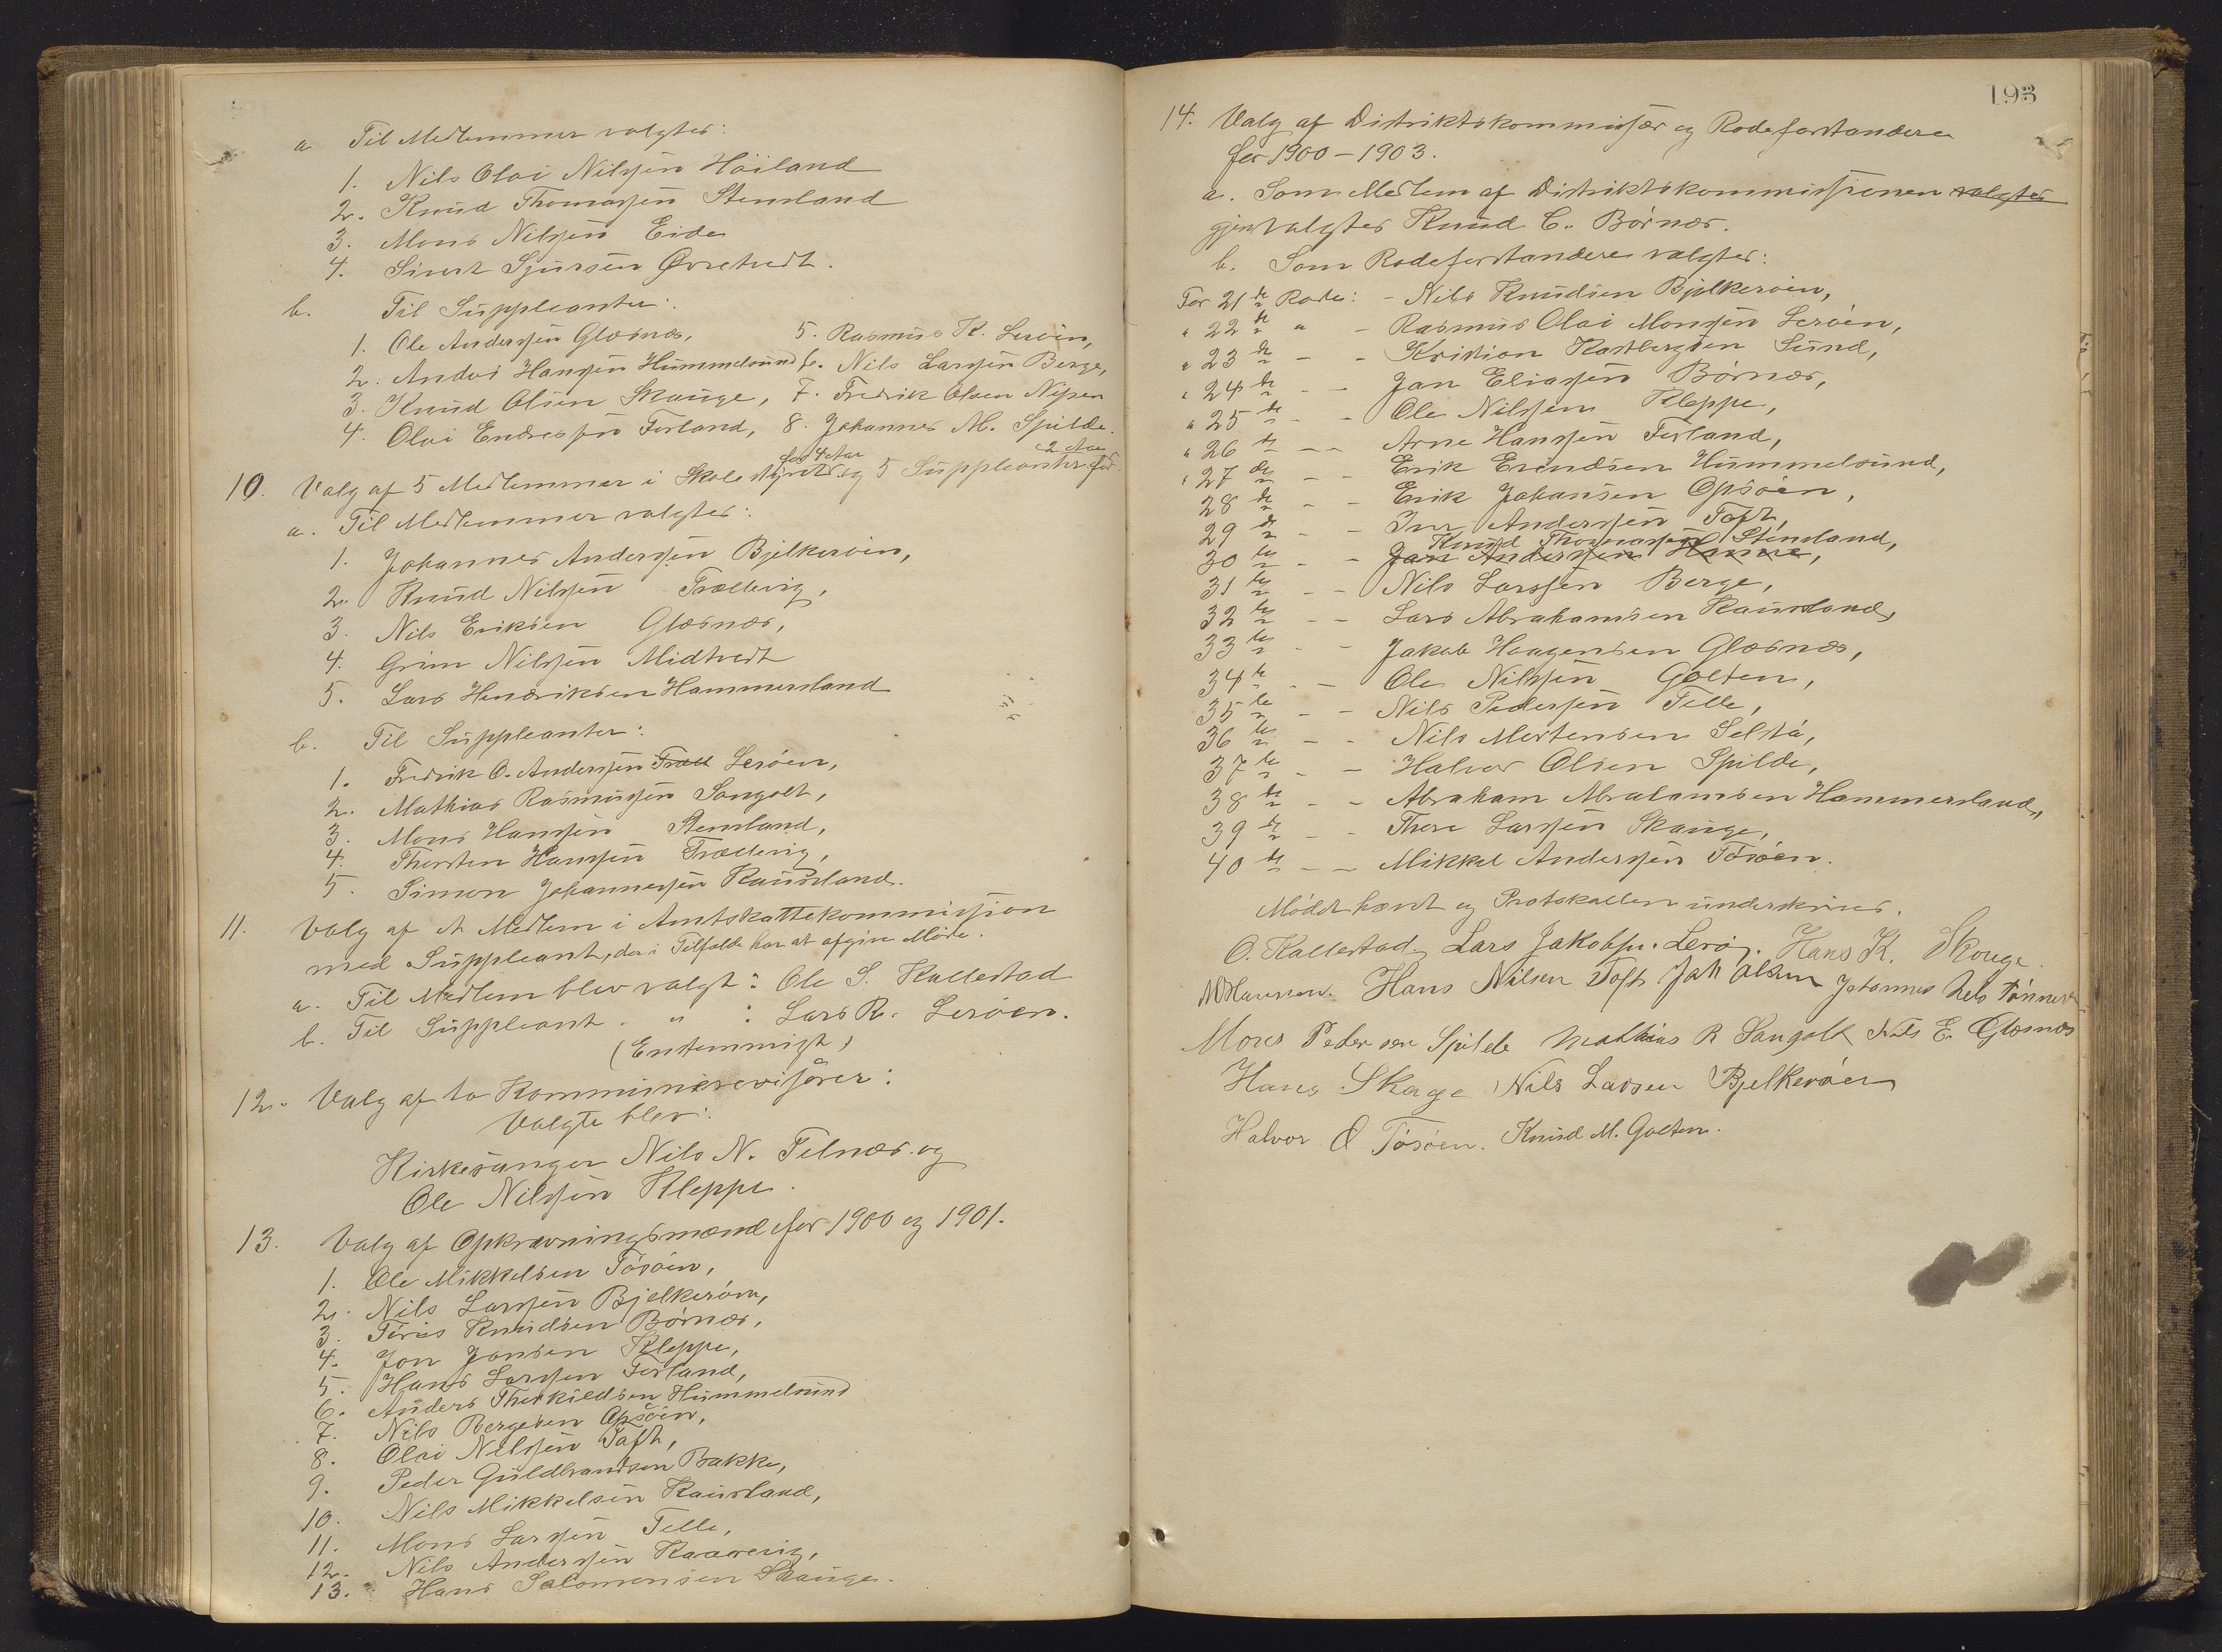 a Til Medlemmer valgtes:
1. Nils Olai Nilssen Höiland
2. Knud Thomassen Stensland
3. Mons Nilssen Eide
4. Sivert Sjursen Øvretvedt.
b. Til Suppleanter:
1. Ole Anderssen Glæsnæs, 5. Rasmus K. Leröen,
2. Anders Hanssen Hummelsund 6. Nils Larssen Berge,
3. Knud Olsen Skauge, 7. Fredrik Olsen Nipen
4. Olai Endressen Forland, 8. Johannes M. Spilde.
10. Valg af 5 Medlemmer i Skolestyret for 4 Aar og 5 Suppleanter for 2 Aar
a. Til Medlemmer valgtes:
1. Johannes Anderssen Bjelkeröen,
2. Knud Nilssen Trællevig,
3. Nils Eriksen Glæsnæs,
4. Grim Nilssen Midtvedt
5. Lars Hendriksen Hammersland
b. Til Suppleanter:
1. Fredrik O. Anderssen Træll Leröen,
2. Mathias Rasmussen Sangolt,
3. Mons Hanssen Stensland,
4. Thorsten Hanssen Trællevig,
5. Simon Johannessen Kausland.
11. Valg af et Medlem i Amtskattekommission
med Suppleant, der i Tilfælde har at afgive Möde.
a. Til Medlem blev valgt: Ole S. Kallestad
b. Til Suppleant " : Lars R. Leröen.
(Enstemmigt)
12. Valg af to Kommunerevisörer:
Valgte blev:
Kirkesanger Nils N. Telnæs og
Ole Nilssen Kleppe.
13. Valg af Opkrævningsmænd for 1900 og 1901.
1. Ole Mikkelsen Tösöen,
2. Nils Larssen Bjelkeröen,
3. Knudsen Börnæs,
4. Jon Jonsen Kleppe,
5. Hans Larssen Forland,
6. Anders Therkildsen Hummelsund
7. Nils Bergesen Opsöen,
8. Olai Nilssen Toft,
9. Peder Guldbrandsen Bakke,
10. Nils Mikkelsen Kausland,
11. Mons Larssen Telle,
12. Nils Anderssen
13. Hans Salomonsen Skauge.
193
14. Valg af Distriktskommissær og Rodeforstandere
for 1900–1903.
a. Som Medlem af Distriktskommissionen valgtes
gjenvalgtes Knud C. Börnæs.
b. Som Rodeforstandere valgtes:
For 21de Rode: - Nils Knudsen Bjelkeröen,
" 22de " - Rasmus Olai Monssen Leröen,
" 23de - - Kristian Sund,
" 24de - - Jan Eliassen Börnæs,
" 25de - - Ole Nilssen Kleppe,
" 26de - - Arne Hanssen Forland,
" 27de - - Erik Erindsen Hummelsund,
28de - - Erik Johansen Opsöen,
29de - - Iver Anderssen Toft,
Knud Thomassen Stensland,
30te - - Jan Anderssen Hanne,
31te - - Nils Larssen Berge,
32te - - Lars Abrahamsen Kausland,
33te - - Jakob Haagensen Glæsnæs,
34te - - Ole Nilssen Golten,
35te - - Nils Pederssen Telle,
36te - - Nils Mortensen Seltå,
37te - - Halvor Olsen Spilde,
38te - - Abraham Abrahamsen Hammersland,
39te - - Thore Larssen Skauge,
40de - - Mikkel Anderssen Tösöen.
Mödet hævet og Protokollen underskrives.
O. Kallestad, Lars Jakobsn. Lerøy. Hans K. Skouge
Hans Nilsen Toft Joh Olsen Johannes
Mons Pedersen Spilde Mathias R Sangolt Nils E. Glæsnæs
Hans Skage Nils Larsen Bjelkeröen
Halvor O Tösöen. Knud M. Golten.